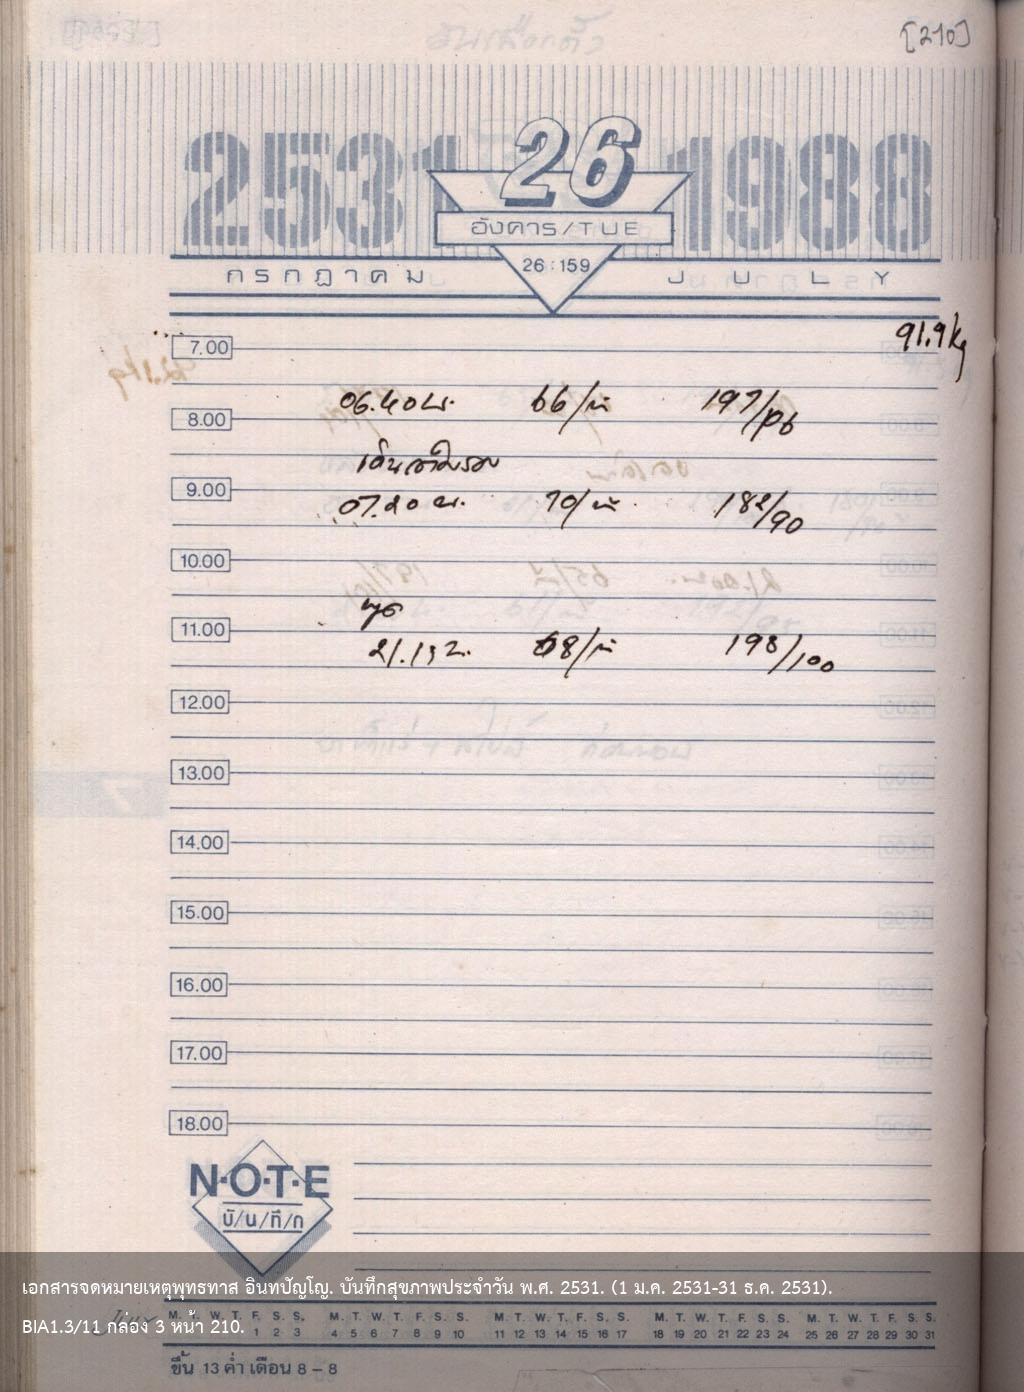 [210]
2531 26 1988
อังคาร/TUE
26:159
กรกฎาคม JULY
91.9 kg
7.00
06.40 น. 66/น
8.00
เดินสามรอบ
9.00
07.20 น. 70/น 182/90
10.00
11.00
21.15 น. 68/น 198/100
12.00
13.00
14.00
15.00
16.00
17.00
18.00
N·O·T·E
บั/น/ทึ/ก
เอกสารจดหมายเหตุพุทธทาส อินทปัญโญ. บันทึกสุขภาพประจำวัน พ.ศ. 2531. (1 ม.ค. 2531-31 ธ.ค. 2531).
M. T. W. T. F. S. S. M. T. W. T. F. S. S. M. T. W. T. F. S. S. M. T. W. T. F. S. S. M. T. W. T. F. S. S.
BIA1.3/11 กล่อง 3 หน้า 210.
1 2 3 4 5 6 7 8 9 10 11 12 13 14 15 16 17 18 19 20 21 22 23 24 25 26 27 28 29 30 31
ขึ้น 13 ค่ำ เดือน 8 – 8